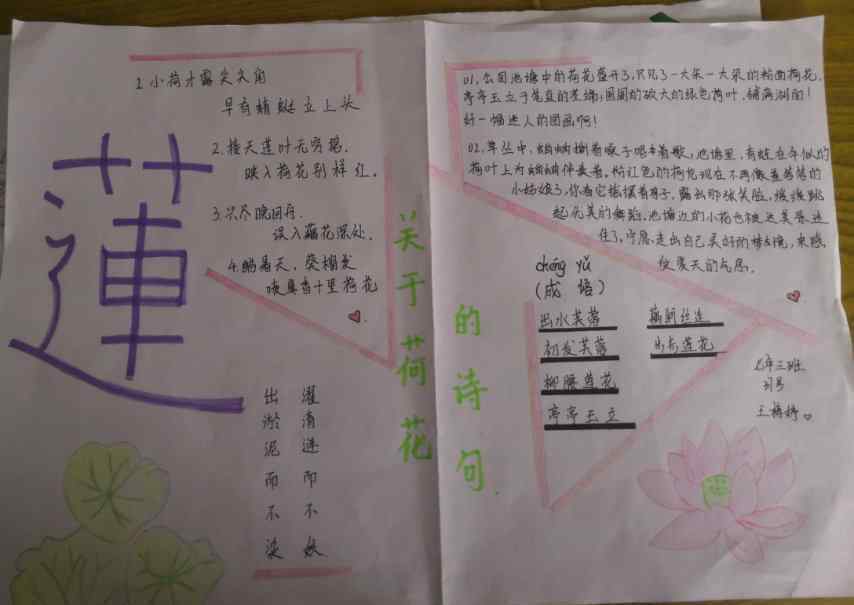 蓮
1.小荷才露尖尖角
早有蜻蜓立上头
2.接天莲叶无穷碧,
映入荷花别样红.
3.兴尽晚回舟.
误入藕花深处.
葵榴发
喷鼻香十里荷花
出淤泥而不染
濯清涟而不妖
关于荷花
的诗句.
01.公园池塘中的荷花盛开了,只见了一大朵一大朵的粉面荷花,
亭亭玉立于笔直的茎端,圆圆的碧大的绿色荷叶,铺满湖面!
好一幅迷人的图画啊!
02.草丛中,蝈蝈捆着嗓子唱着歌,池塘里,青蛙在伞似的
荷叶上为蝈蝈伴奏着,粉红色的荷花现在不再像羞答答的
小姑娘了,你看它摇摆着身子,露出那张笑脸,缓缓跳
起优美的舞蹈.池塘边的小花也被这美景迷
住了,宁愿走出自己美好的梦境,来感
受夏天的气息.
chéng yǔ
(成 语)
出水芙蓉
藕断丝连
初发芙蓉
步步莲花
柳腰莲花
亭亭玉立
七年三班
王梅婷